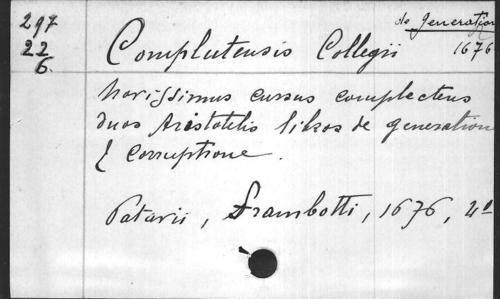 297 de generation
22 Complutensis Collegii 1676
6.
Novissimus cursus complectens
duos Aristotelis libros de generation
& corruptione.
Patavii, Frambotti, 1676, 4º